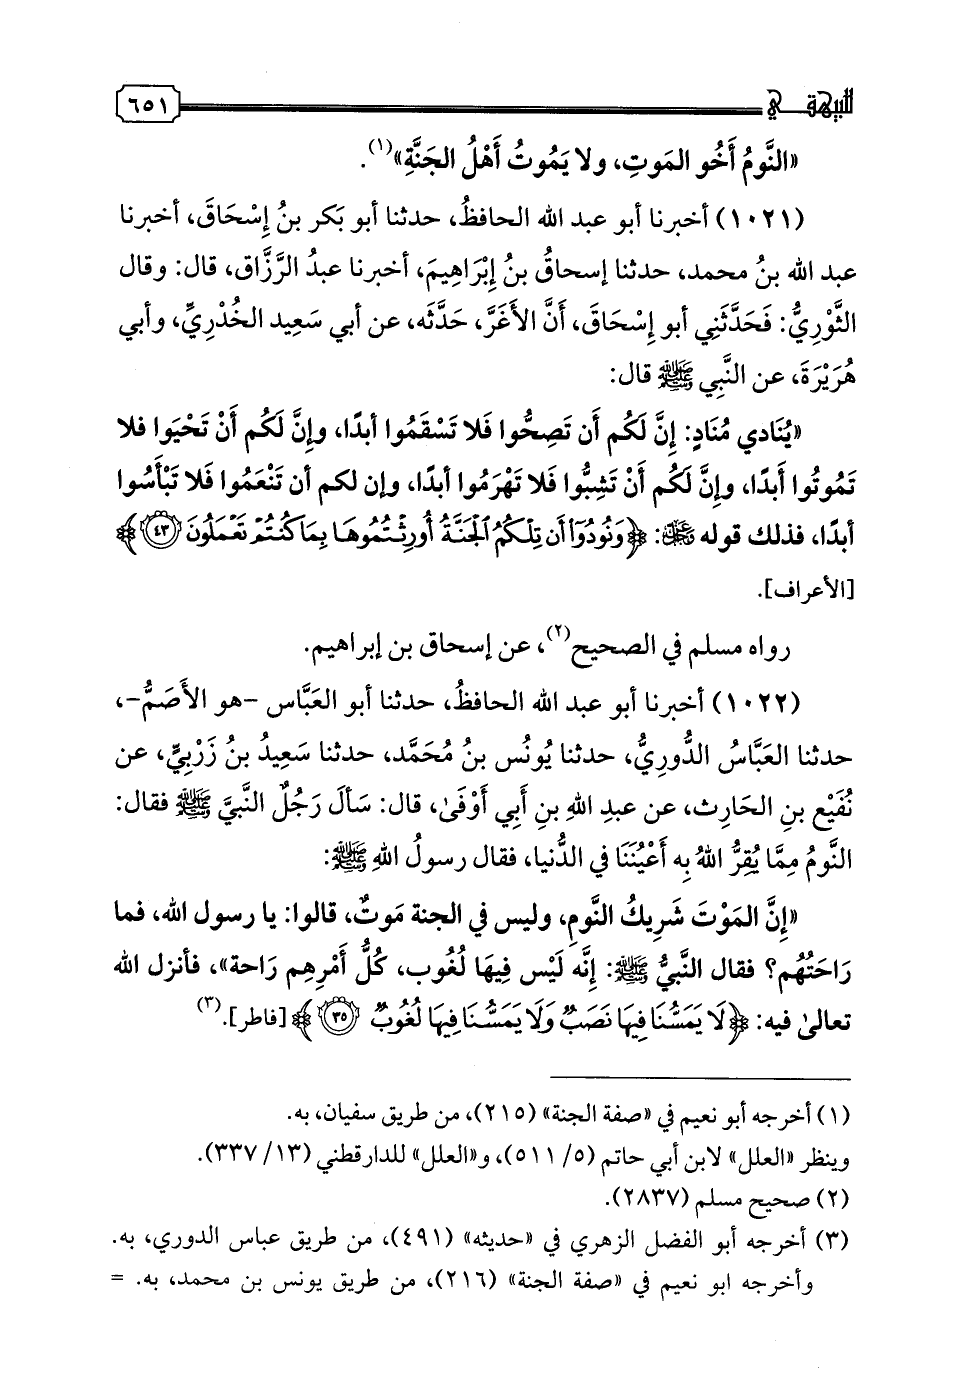 للبيهقي
٦٥١
«النَّومُ أَخُو المَوتِ، ولا يَمُوتُ أَهْلُ الجَنَّةِ»(١).
(١٠٢١) أخبرنا أبو عبد الله الحافظُ، حدثنا أبو بَكر بنُ إِسْحَاقَ، أخبرنا
عبد الله بنُ محمد، حدثنا إسحاقُ بنُ إِبْرَاهِيمَ، أخبرنا عبدُ الرَّزَّاق، قال: وقال
الثَّوْرِيُّ: فَحَدَّثَنِي أبو إِسْحَاقَ، أَنَّ الأَغَرَّ، حَدَّثَه، عن أبي سَعِيد الخُدْرِيِّ، وأبي
هُرَيْرَةَ، عن النَّبِي ﷺ قال:
«يُنَادي مُنَادٍ: إِنَّ لَكُم أَن تَصِحُّوا فَلا تَسْقَمُوا أبدًا، وإِنَّ لَكُم أَنْ تَحْيَوا فلا
تَمُوتُوا أَبَدًا، وإِنَّ لَكُمْ أَنْ تَشِبُّوا فَلا تَهْرَمُوا أبدًا، وإن لكم أن تَنْعَمُوا فَلا تَبْأَسُوا
أبدًا، فذلك قوله ﷻ: ﴿وَنُودُوٓا۟ أَن تِلْكُمُ ٱلْجَنَّةُ أُورِثْتُمُوهَا بِمَا كُنتُمْ تَعْمَلُونَ ٤٣﴾
[الأعراف].
رواه مسلم في الصحيح(٢)، عن إسحاق بن إبراهيم.
(١٠٢٢) أخبرنا أبو عبد الله الحافظُ، حدثنا أبو العَبَّاس -هو الأَصَمُّ-،
حدثنا العَبَّاسُ الدُّورِيُّ، حدثنا يُونُس بنُ مُحَمَّد، حدثنا سَعِيدُ بنُ زَرْبِيٍّ، عن
نُفَيْع بنِ الحَارِث، عن عبدِ اللهِ بنِ أَبِي أَوْفَىٰ، قال: سَأَلَ رَجُلٌ النَّبيَّ ﷺ فقال:
النَّومُ مِمَّا يُقِرُّ اللهُ به أَعْيُنَنَا في الدُّنيا، فقال رسولُ اللهِ ﷺ:
«إِنَّ المَوْتَ شَرِيكُ النَّومِ، وليس في الجنة مَوتٌ، قالوا: يا رسول الله، فما
رَاحَتُهُم؟ فقال النَّبيُّ ﷺ: إِنَّه لَيْس فِيهَا لُغُوب، كُلُّ أَمْرِهِم رَاحة»، فأنزل الله
تعالىٰ فيه: ﴿لَا يَمَسُّنَا فِيهَا نَصَبٌ وَلَا يَمَسُّنَا فِيهَا لُغُوبٌ ٣٥﴾ [فاطر].(٣)
(١) أخرجه أبو نعيم في «صفة الجنة» (٢١٥)، من طريق سفيان، به.
وينظر «العلل» لابن أبي حاتم (٥/ ٥١١)، و«العلل» للدارقطني (١٣/ ٣٣٧).
(٢) صحيح مسلم (٢٨٣٧).
(٣) أخرجه أبو الفضل الزهري في «حديثه» (٤٩١)، من طريق عباس الدوري، به.
وأخرجه ابو نعيم في «صفة الجنة» (٢١٦)، من طريق يونس بن محمد، به. =